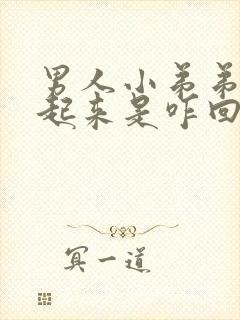 男人小弟弟
起来是咋回
冥一道